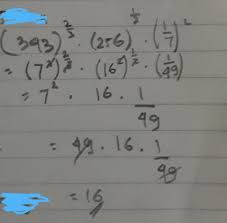 (343)^(2/3) · (256)^(1/2) · (1/7)^2
= (7^3)^(2/3) · (16^2)^(1/2) · (1/49)
= 7^2 · 16 · 1/49
= 49 · 16 · 1/49
= 16